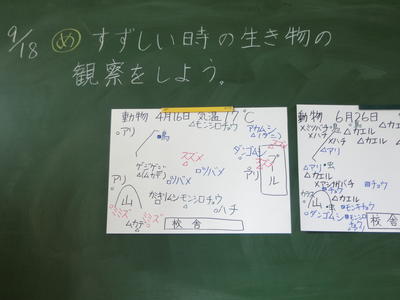 9/18 め すずしい時の生き物の
観察をしよう。
動物 4月16日 気温17℃
○アリ
■鳥
△モンシロチョウ
アカムシ
(ダニ)
ダンゴムシ
スズメ
スズメ
ゲジゲジ
△(ムカデ)
○ツバメ
○ツバメ
アリ
プール
アリ
山
モンシロチョウ
○ハチ
ミミズ
ミミズ
ムカデ
校舎
動物 6月26日
×ミツバチ
鳥
△カエル
×ハチ
△カエル
△アリ
△アリ
虫
×カエル
×アシナガバチ
■チョウ
■チョウ
山
△カエル
虫
■モンキチョウ
○ダンゴムシ
■モンシロチョウ
アリ
校舎